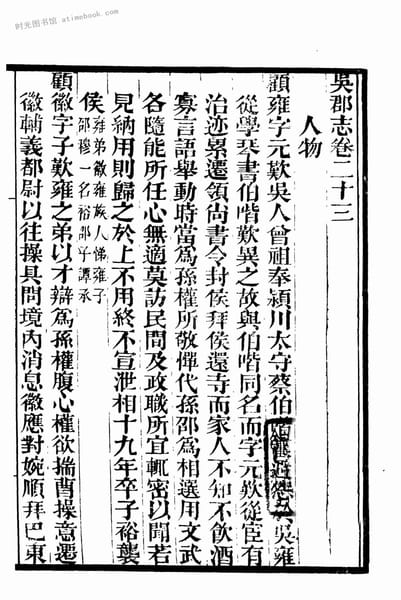 时光图书馆 atimebook.com
吳郡志卷二十三
人物
顧雍字元歎吳人曾祖奉潁川太守蔡伯吳雍
從學琴書伯喈歎異之故與伯喈同名而字元歎從臣有
治迹累遷領尚書令封侯拜侯還寺而家人不知不飲酒
寡言語舉動時當為孫權所敬憚代孫邵為相選用文武
各隨能所任心無適莫訪民間及政職所宜輒密以聞若
見納用則歸之於上不用終不宣泄相十九年卒子裕襲
侯雍弟徽雍族人悌雍子
邵穆一名裕邵子譚承
顧徽字子歎雍之弟以才辯為孫權腹心權欲揣曹操意遷
徽輔義都尉以往操具問境內消息徽應對婉順拜巴東